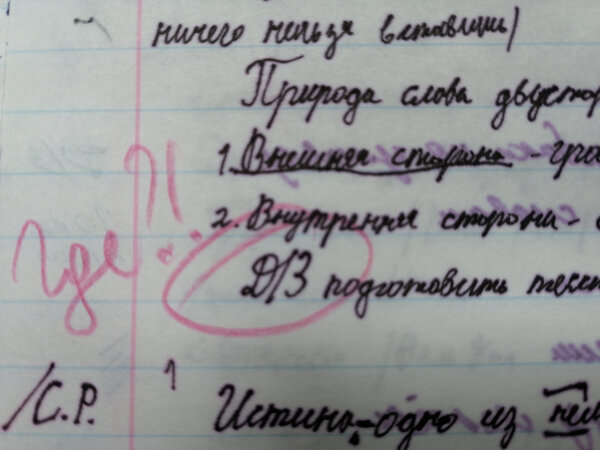 ничего нельзя вставишь)
Природа слова двустор
1. Внешняя сторона - гра
2. Внутренняя сторона -
где?!
Д/З подготовить текст
/С.Р. 1 Истина - одно из